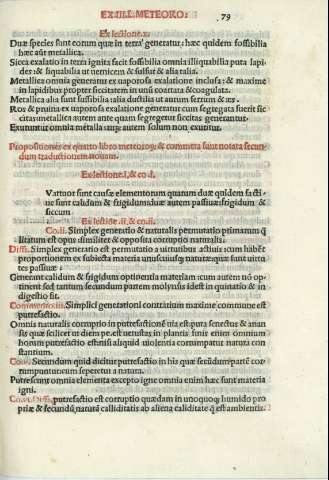 EX IIII. METEORO: 79
Ex lectione.x.
Duæ species sunt eorum quæ in terra generatur: hæc quidem fossibilia
hæc aūt metallica.
Sicca exalatio in terra ignita facit fossibilia omnia illiquabilia puta lapi
des: & liquabilia ut uernicem & sulfur & alia talia.
Metallica omnia generantur ex uaporosa exalatione inclusa: & maxime
in lapidibus propter siccitatem in unū coartata & coagulata.
Metallica alia sunt fussibilia talia ductilia ut aurum ferrum & æs
Ros & pruina ex uaporosa exalatione generatur cum segregata fuerit sic
citas metallica autem ante quam segregetur siccitas generantur.
Exuruntur omnia metalla ut æs: autem solum non, exuritur.
Propositiones ex quarto libro meteoro⁊ & commenta sunt notata secun
dum traductionem nouam.
Ex lectione.i. & co i.
Vattuor sunt causæ elementorum quarum duæ quidem facti
uæ sunt calidum & frigidum: duæ autem passiuæ: frigidum &
siccum
Ex lectiōe .ii. & co.ii.
Co.ii. Simplex generatio & naturalis permutatio primarum q̄
litatum est opus similiter & opposita corruptio naturalis.
Diffi. Simplex generatio est permutatio a uirtutibus actiuis cum habēt
proportionem ex subiecta materia unuscuiusq; naturæ: quæ sunt uirtu
tes passiuæ:
Generant calidum & frigidum optinentia materiam: cum autem nō op
tinent sed tantum secundum partem molynsis idest in quinatio & in
digestio fit.
Commento.iii. Simplici generationi contrarium maxime commune est
putrefactio.
Omnis naturalis corruptio in putrefactionē uia est: puta senectus & aima
sis quæ scilicet ut diem pe est uetustas in plantis finis enim omnium
horum putrefactio est: nisi aliquid uiolentia corrumpatur natura con
stantium.
Com. Secundum quid dicitur putrefactio in his quæ secundū partē cor
rumpuntur cum seperetur a natura.
Putrescunt omnia elementa excepto igne omnia enim hæc sunt materia
igni.
Com. Diffi. putrefactio est corruptio quædam in unoquoq; humido pro
priæ & secundū naturā calliditatis ab aliena caliditate q̄ est ambientis.